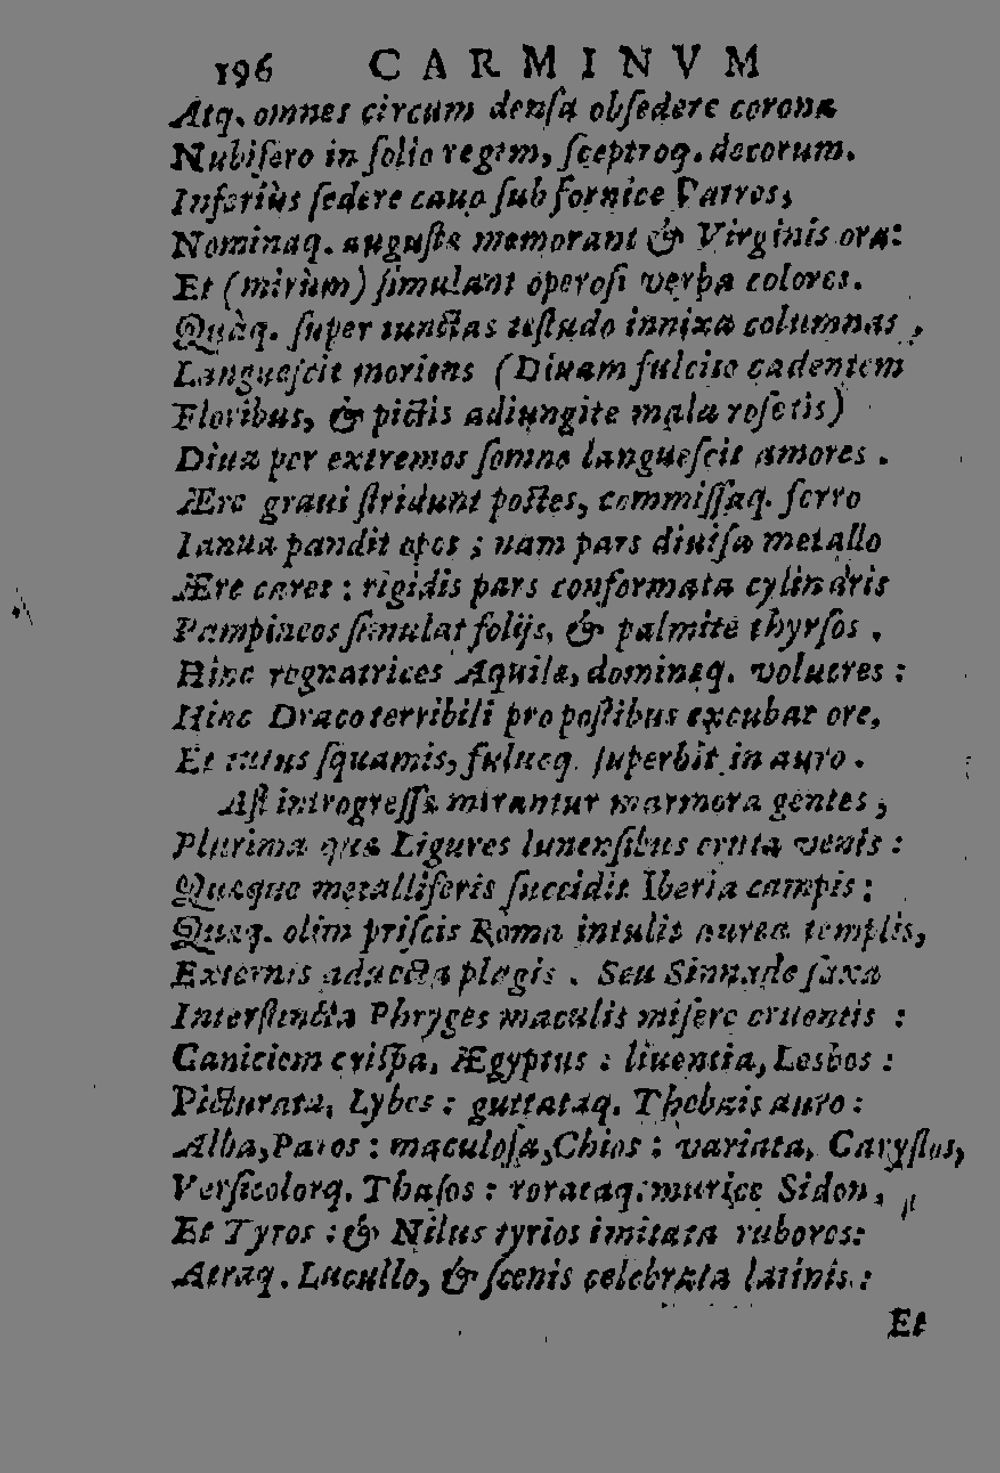 196 CARMINVM
Atq. omnes circum densa obsedere corona
Nubifero in solio regem, sceptroq. decorum.
Inferiùs sedere cauo sub fornice Patres,
Nominaq. augustæ memorant & Virginis ora:
Et (mirùm) simulant operosi verba colores.
Quàq. super iunctas testudo innixa columnas,
Languescit moriens (Diuam fulcite cadentem
Floribus, & pictis adiungite mala rosetis)
Diua per extremos somno languescit amores.
Ære graui stridunt postes, commissaq. ferro
Ianua pandit opes; nam pars diuisa metallo
Ære caret: rigidis pars conformata cylindris
Pampineos simulat folijs, & palmite thyrsos.
Hinc regnatrices Aquilæ, dominæq. volucres:
Hinc Draco terribili pro postibus excubat ore,
Et squamis, fulueq. superbit in auro.
Ast introgressæ mirantur marmora gentes,
Plurima quæ Ligures lunensibus eruta venis:
Quæque metalliferis succidit Iberia campis:
Quæq. olim priscis Roma intulit aurea templis,
Externis aduecta plagis. Seu Sinnade saxa
Interstincta Phryges maculis misere cruentis:
Caniciem crispa, Ægyptus: liuentia, Lesbos:
Picturata, Lybes: guttataq. Thebais auro:
Alba, Paros: maculosa, Chios: variata, Carystos,
Versicolorq. Thasos: rorataq. murice Sidon,
Et Tyros: & Nilus tyrios imitata rubores:
Atraq. Lucullo, & scenis celebrata latinis:
Et